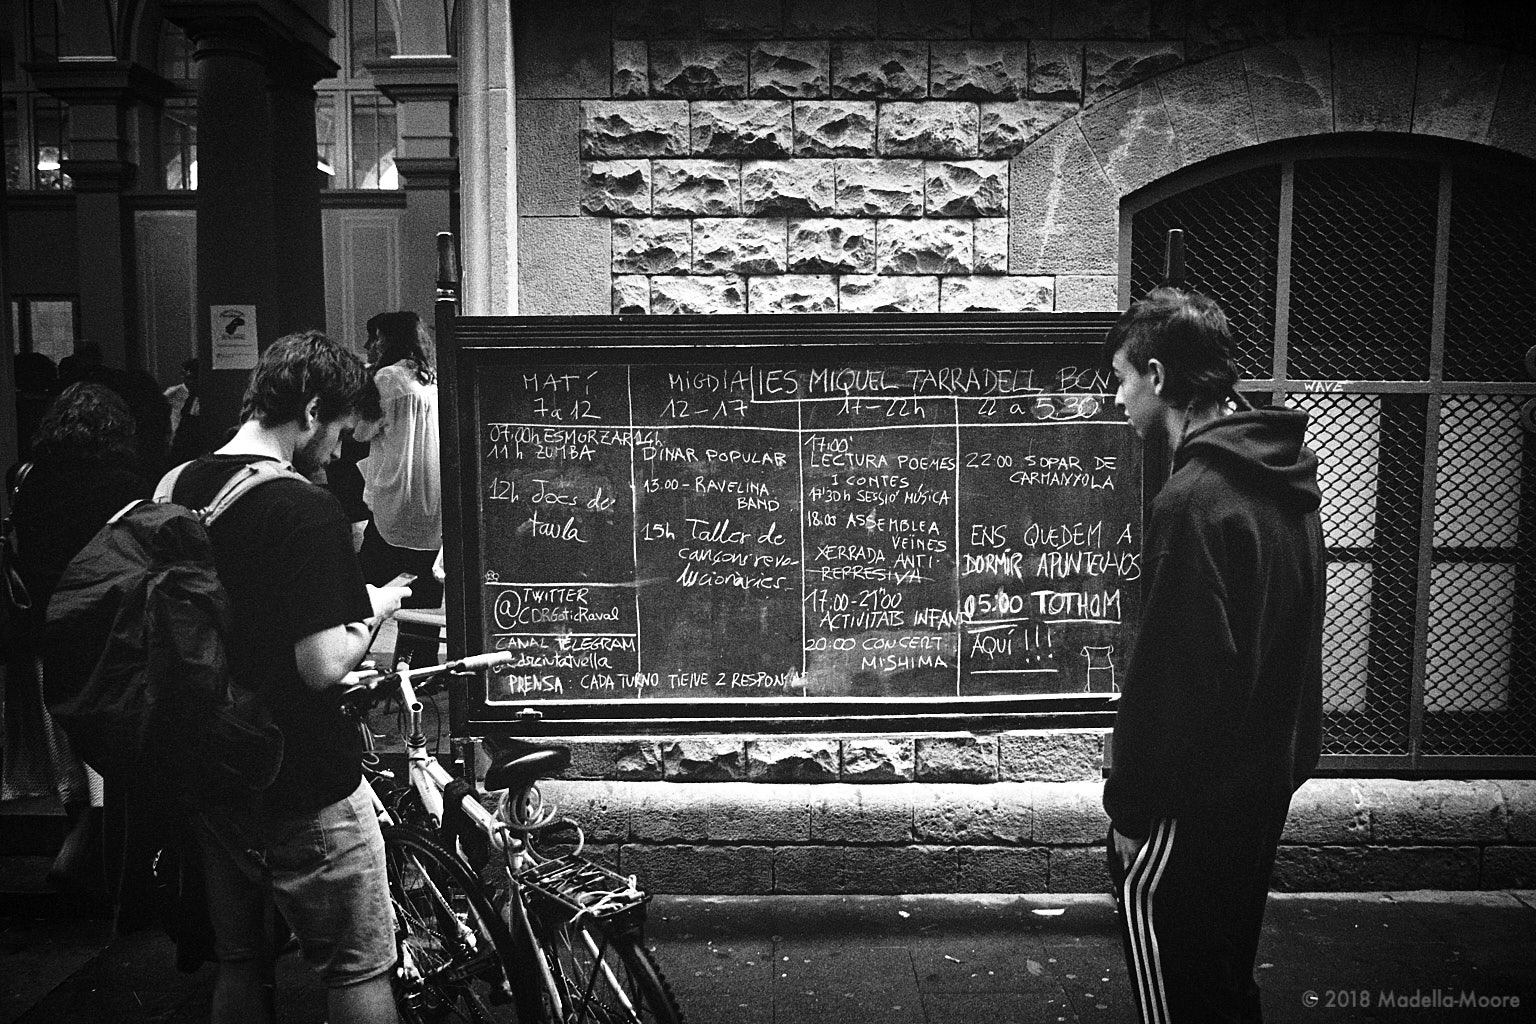 IES MIQUEL TARRADELL BCN
MATÍ
7 a 12
07:00h ESMORZAR
11h ZUMBA
12h Jocs de
taula
@TWITTER
CDRGoticRaval
CANAL TÉLEGRAM
PRENSA: CADA TURNO TIENE 2
MIGDIA
12-17
14h
DINAR POPULAR
13.00-RAVELINA
BAND.
15h Taller de
cançons revo-
lucionàries.
17-22h
17:00'
LECTURA POEMES
I CONTES
17'30h SESSIÓ MÚSICA
18:00 ASSEMBLEA
VEÏNES
XERRADA ANTI-
REPRESIVA
17:00-21'00
ACTIVITATS
20:00 CONCERT
MISHIMA
22 a 5:30
22:00 SOPAR DE
CARMANYOLA
ENS QUEDEM A
DORMIR APUNTEU-VOS
05:00 TOTHOM
AQUÍ !!!
WAVE
© 2018 Madella-Moore